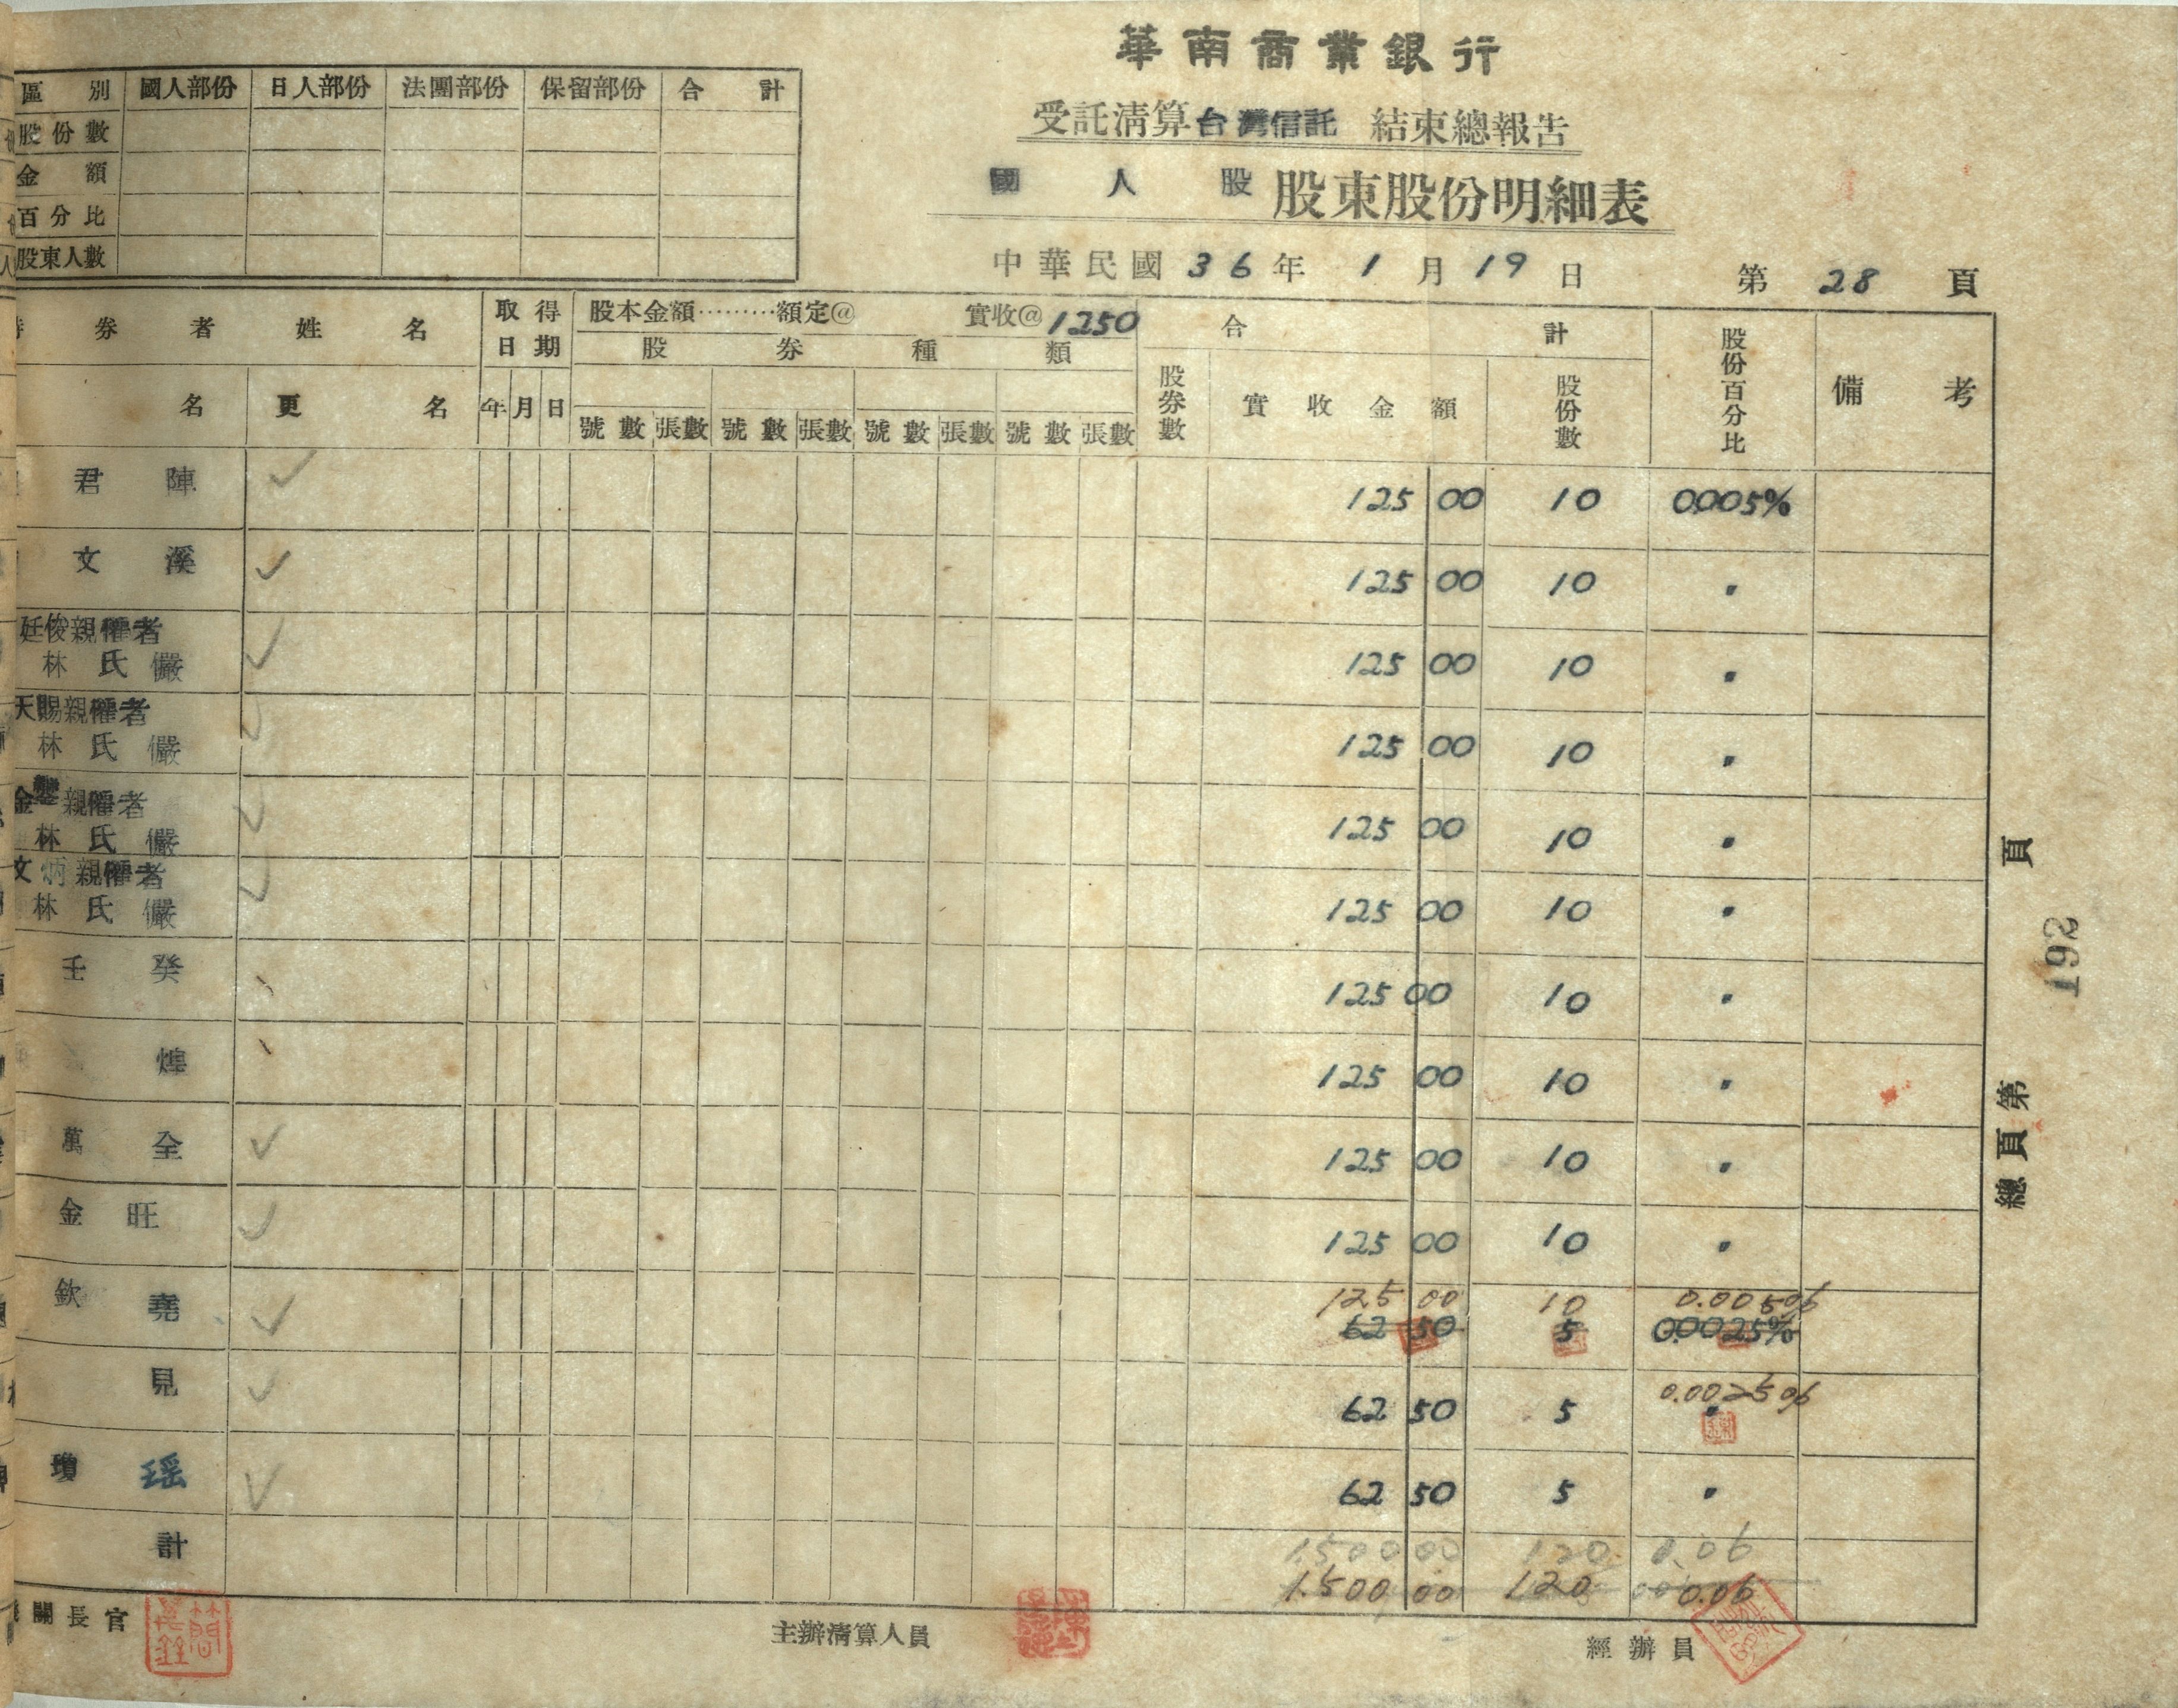 華南商業銀行
受託清算台灣信託 結束總報告
國人股 股東股份明細表
中華民國 36 年 1 月 19 日 第 28 頁
區別 國人部份 日人部份 法團部份 保留部份 合計
股份數
金額
百分比
股東人數
券者姓名 取得日期 股本金額………額定@ 實收@ 1250 合計 股份百分比 備考
股券種類
名 更名 年 月 日 號數 張數 號數 張數 號數 張數 號數 張數 股券數 實收金額 股份數
君陣 125 00 10 0.005%
文溪 125 00 10 〃
廷俊親權者
林氏儼 125 00 10 〃
天賜親權者
林氏儼 125 00 10 〃
金 親權者
林氏儼 125 00 10 〃
文炳親權者
林氏儼 125 00 10 〃
壬癸 125 00 10 〃
煌 125 00 10 〃
萬全 125 00 10 〃
金旺 125 00 10 〃
125 00 10 0.005%
欽堯 62 50 5 0.0025%
0.0025%
見 62 50 5 〃
瓊瑶 62 50 5 〃
1.500 00 120 0.06
計 1.500 00 120 0.06
關長官 主辦清算人員 經辦員
總頁第 192 頁